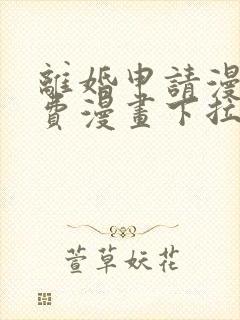 離婚申請漫
費漫畫下拉
萱草妖花